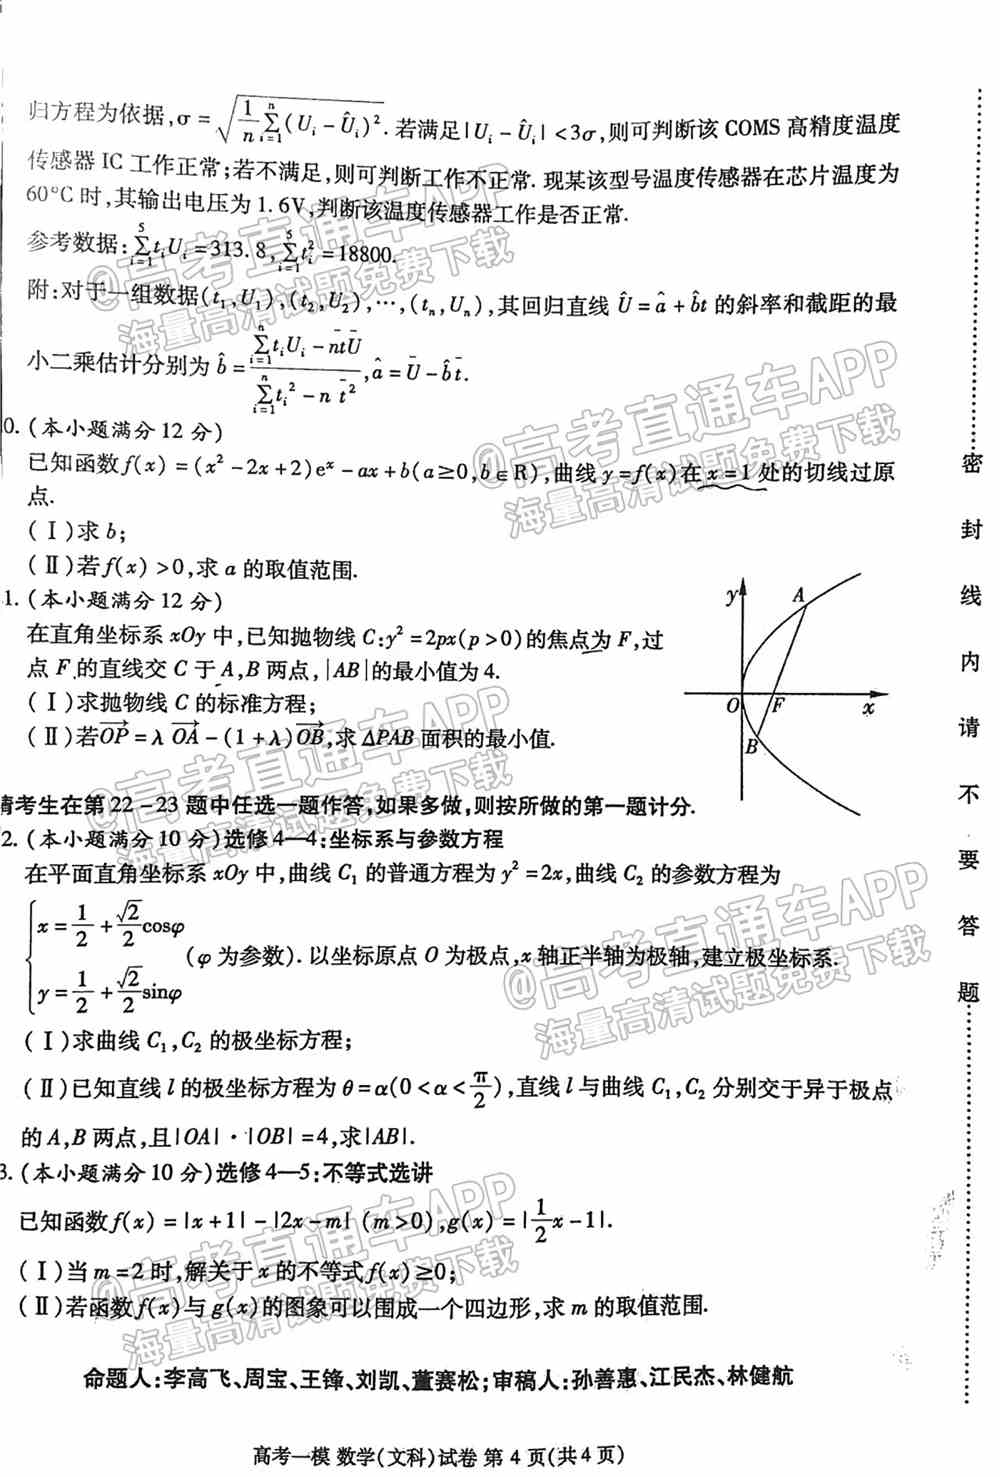 归方程为依据,σ=√(1/n ∑ⁿᵢ₌₁(Uᵢ-Ûᵢ)². 若满足|Uᵢ-Ûᵢ|<3σ,则可判断该 COMS 高精度温度
传感器 IC 工作正常;若不满足,则可判断工作不正常. 现某该型号温度传感器在芯片温度为
60℃时,其输出电压为1.6V,判断该温度传感器工作是否正常.
参考数据:∑⁵ᵢ₌₁tᵢUᵢ=313.8,∑⁵ᵢ₌₁tᵢ²=18800.
附:对于一组数据(t₁,U₁),(t₂,U₂),…,(tₙ,Uₙ),其回归直线 Û=â+b̂t 的斜率和截距的最
小二乘估计分别为 b̂=(∑ⁿᵢ₌₁tᵢUᵢ-nt̄Ū)/(∑ⁿᵢ₌₁tᵢ²-n t̄²),â=Ū-b̂t̄.
0. (本小题满分12分)
已知函数f(x)=(x²-2x+2)eˣ-ax+b(a≥0,b∈R),曲线y=f(x)在x=1处的切线过原
点.
(Ⅰ)求b;
(Ⅱ)若f(x)>0,求a的取值范围.
1. (本小题满分12分)
在直角坐标系xOy中,已知抛物线C:y²=2px(p>0)的焦点为F,过
点F的直线交C于A,B两点,|AB|的最小值为4.
(Ⅰ)求抛物线C的标准方程;
(Ⅱ)若OP→=λOA→-(1+λ)OB→,求△PAB面积的最小值.
y
A
O
F
x
B
请考生在第22-23题中任选一题作答,如果多做,则按所做的第一题计分.
2. (本小题满分10分)选修4—4:坐标系与参数方程
在平面直角坐标系xOy中,曲线C₁的普通方程为y²=2x,曲线C₂的参数方程为
{x=1/2+√2/2cosφ
y=1/2+√2/2sinφ
(φ为参数). 以坐标原点O为极点,x轴正半轴为极轴,建立极坐标系.
(Ⅰ)求曲线C₁,C₂的极坐标方程;
(Ⅱ)已知直线l的极坐标方程为θ=α(0<α<π/2),直线l与曲线C₁,C₂分别交于异于极点
的A,B两点,且|OA|·|OB|=4,求|AB|.
3. (本小题满分10分)选修4—5:不等式选讲
已知函数f(x)=|x+1|-|2x-m| (m>0),g(x)=|1/2x-1|.
(Ⅰ)当m=2时,解关于x的不等式f(x)≥0;
(Ⅱ)若函数f(x)与g(x)的图象可以围成一个四边形,求m的取值范围.
命题人:李高飞、周宝、王锋、刘凯、董赛松;审稿人:孙善惠、江民杰、林健航
高考一模 数学(文科)试卷 第4页(共4页)
密
封
线
内
请
不
要
答
题
@高考直通车APP
海量高清试题免费下载
@高考直通车APP
海量高清试题免费下载
@高考直通车APP
海量高清试题免费下载
@高考直通车APP
海量高清试题免费下载
@高考直通车APP
海量高清试题免费下载